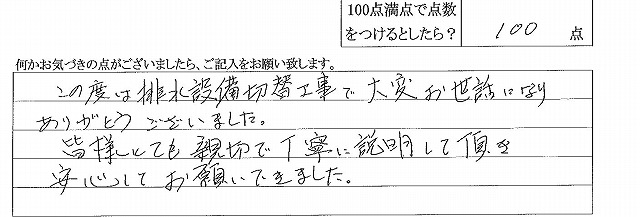 100点満点で点数
をつけるとしたら？ 100 点
何かお気づきの点がございましたら、ご記入をお願い致します。
この度は排水設備切替工事で大変お世話になり
ありがとうございました。
皆様とても親切で丁寧に説明して頂き
安心してお願いできました。